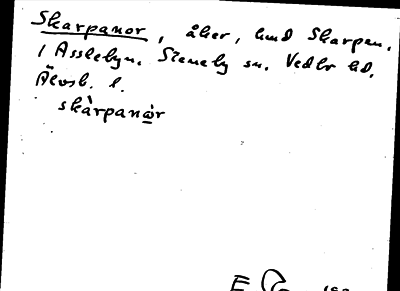 Skarpanor, åker, hmd Skarpen.
i Asslebyn. Steneby sn. Vedbo hd.
Älvsb. l.
skàrpanàr